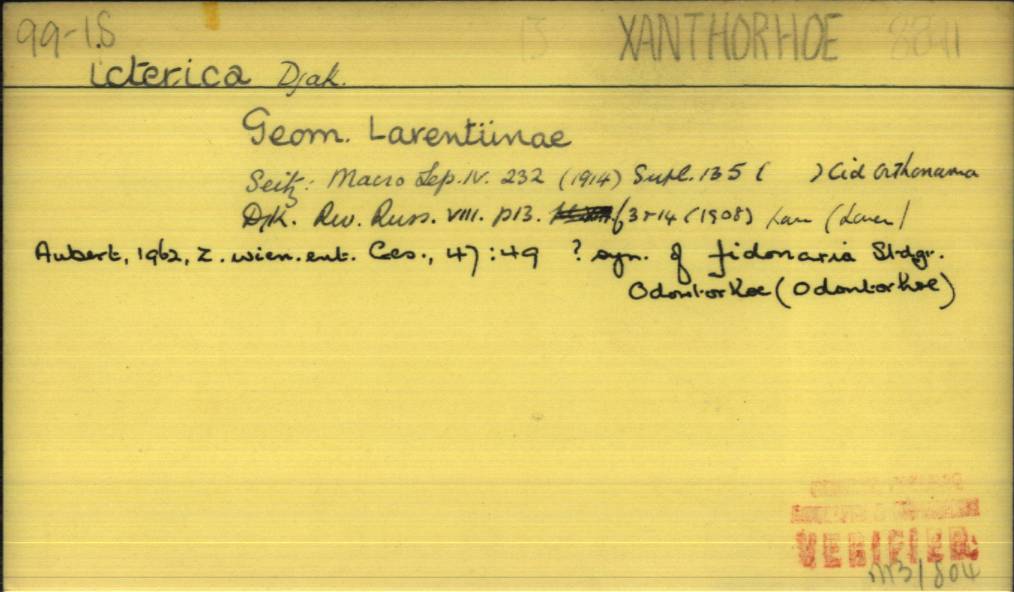 99-1S XANTHORHOE
icterica Djak.
Geom. Larentiinae
Seitz: Macro Lep. IV. 232 (1914) Supl. 135 ( ) Cid Orthonama
Djk. Rev. Russ. VIII. p13. (1908) Lar (Laren)
Aubert, 1962, Z. wien. ent. Ges., 47:49 ? syn. of fidonaria Stdgr.
Odontorhoe (Odontorhoe)
VERIFIED